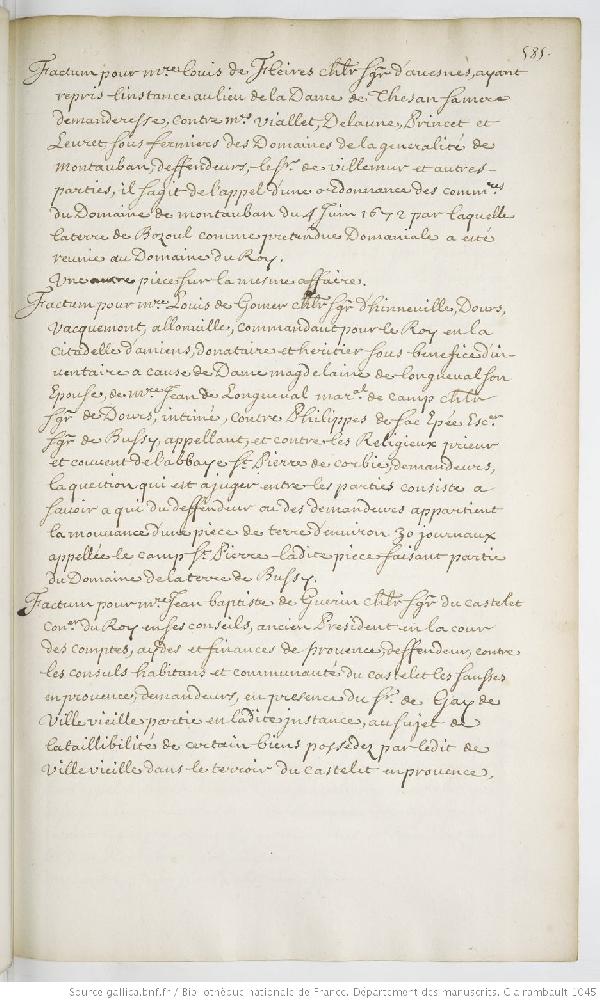 585.
Factum pour mre Louis de Fleires chlr sgr d'avesnes, ayant
repris linstance au lieu de la Dame de Thesan sa mere
demanderesse, contre mrs Viallet, Delaune, Princet et
Levret sous fermiers des Domaines de la generalité de
montauban, deffendeurs, le sr. de villemur et autres
parties, il sagit de l'appel d'une ordonnance des commres
du Domaine de montauban du 4 Juin 1672 par laquelle
la terre de Bozoul comme pretendue Domaniale a esté
reunie au Domaine du Roy.
Une autre piece sur la mesme affaire.
Factum pour mre Louis de Gomer chlr sgr d'hinneville, Dours,
Vacquemont, allonville, commandant pour le Roy en la
Citadelle d'amiens, donataire et heritier sous benefice d'in-
ventaire a cause de Dame magdelaine de longueval son
Epouse, de mre Jean de Longueval maral. de camp chlr
sgr de Dours, intimé, contre Philippes de sac Epée Escer
sgr de Bussy, appellant, et contre les Religieux prieur
et couvent de l'abbaye st. Pierre de corbie, demandeurs,
la question qui est a juger entre les parties consiste a
savoir a qui du deffendeur ou des demandeurs appartient
la mouvance d'une piece de terre d'environ 30 journaux
appellée le camp st. Pierre ladite piece faisant partie
du Domaine de la terre de Bussy.
Factum pour mre Jean baptiste de Guerin chlr sgr du castelet
coner du Roy en ses conseils, ancien President en la cour
des comptes, aydes et finances de provence, deffendeur, contre
les consuls habitans et communauté du castelet les sausses
en provence, demandeurs, en presence du sr. de Glay de
Ville vieille partie en ladite instance, au sujet de
la taillibilité de certain biens possedez par ledit de
Ville vieille dans le terroir du castelet en provence.
Source gallica.bnf.fr / Bibliothèque nationale de France. Département des manuscrits. Clairambault 1045